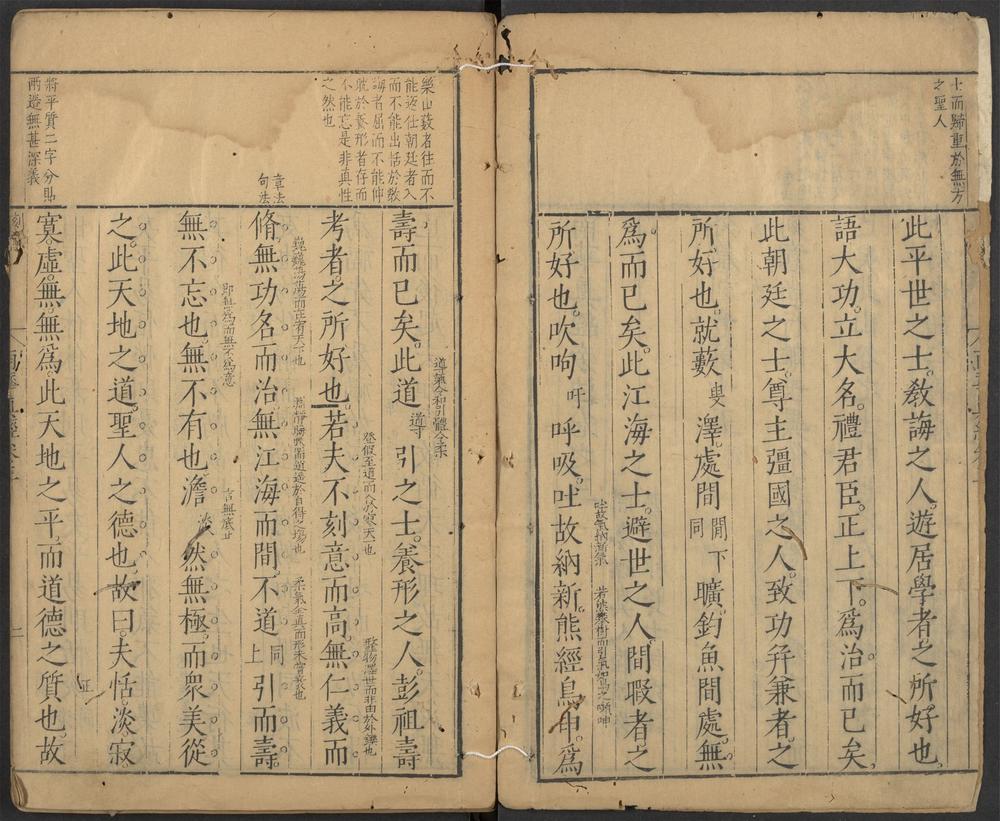 士而歸重於無方
之聖人
此平世之士教誨之人遊居學者之所好也
語大功立大名禮君臣正上下爲治而已矣
此朝廷之士尊主彊國之人致功并兼者之
所好也就藪叟澤處間閒同下曠釣魚間處無
爲而已矣此江海之士避世之人間暇者之
所好也吹呴吁呼吸吐故納新熊經鳥申爲
吐故氣納新氣
樂山藪者往而不
能返仕朝廷者入
而不能出恬於教
誨者屈而不能伸
耽於養形者存而
不能忘是非真性
之然也
章法
句法
將平質二字分貼
兩邊無甚深義
導氣令和引體令柔
壽而已矣此道導引之士養形之人彭祖壽
登假至道而合於寥天一也
考者之所好也若夫不刻意而高無仁義而
巍巍蕩蕩而正有天下也
脩無功名而治無江海而間不道同上引而壽
即無爲而無不爲意
言無底止
無不忘也無不有也澹淡然無極而衆美從
之此天地之道聖人之德也故曰夫恬淡寂
正
寞虛無無爲此天地之平而道德之質也故